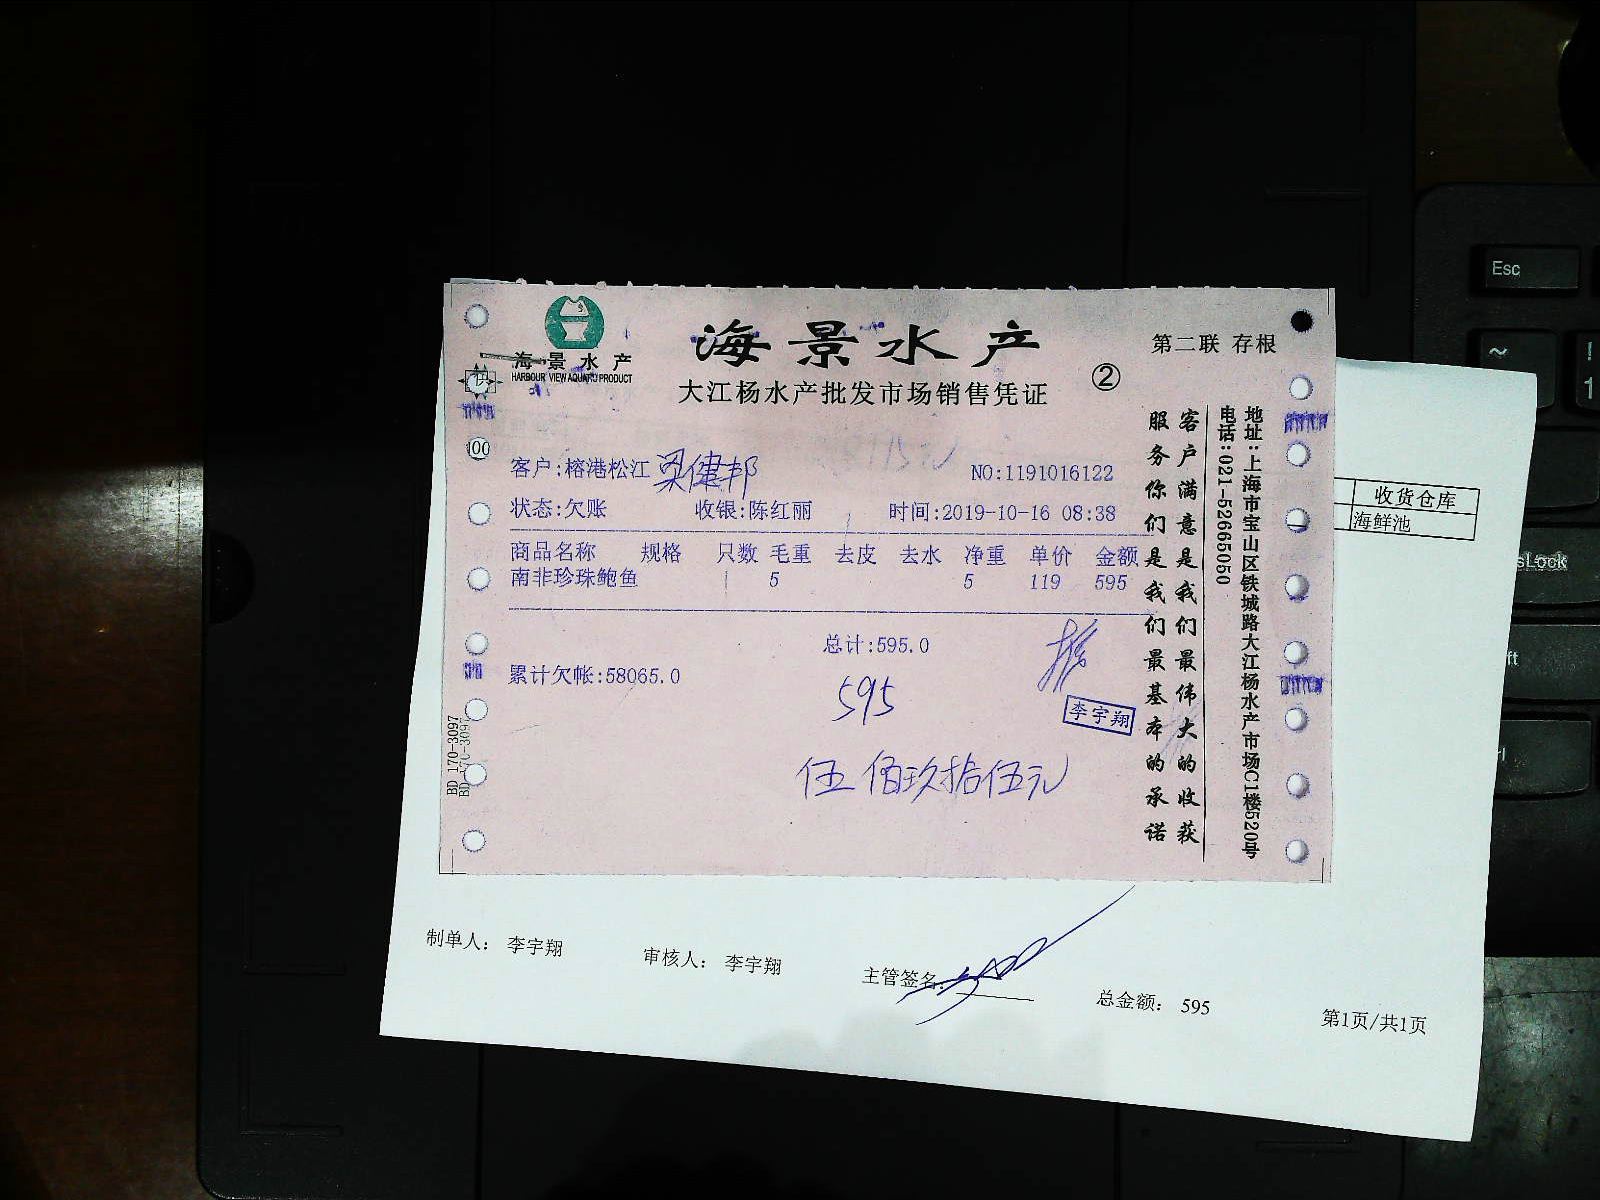 海景水产
HARBOUR VIEW AQUATIC PRODUCT
海景水产
大江杨水产批发市场销售凭证
②
第二联 存根
客户:榕港松江 梁健邦
NO:1191016122
状态:欠账 收银:陈红丽 时间:2019-10-16 08:38
商品名称 规格 只数 毛重 去皮 去水 净重 单价 金额
南非珍珠鲍鱼 5 5 119 595
总计:595.0
累计欠帐:58065.0
595
李宇翔
伍佰玖拾伍元
客户满意是我们最伟大的收获
服务你们是我们最基本的承诺
地址:上海市宝山区铁城路大江杨水产市场C1楼520号
电话:021-52665050
BD 170-3097
BD 170-3097
100
收货仓库
海鲜池
制单人: 李宇翔 审核人: 李宇翔 主管签名: 总金额: 595 第1页/共1页
Esc
~
!
1
sLock
ft
rl